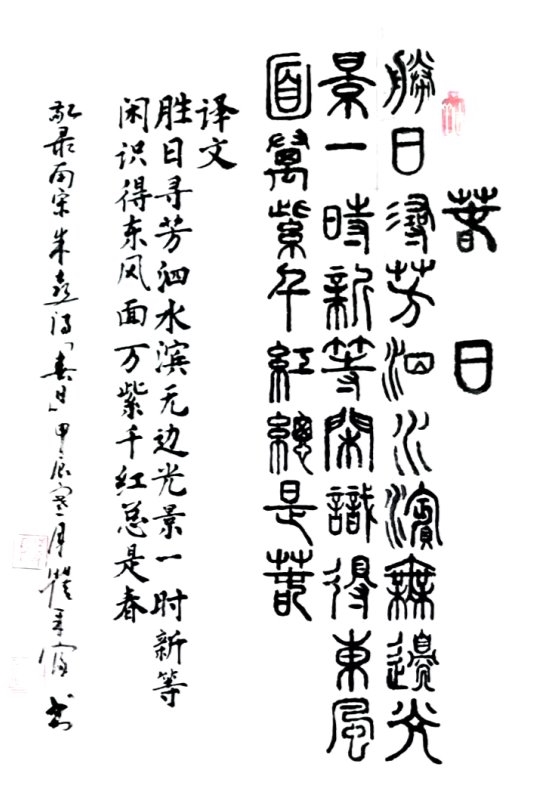 春日
勝日尋芳泗水濱無邊光
景一時新等閑識得東風
面萬紫千紅總是春
译文
胜日寻芳泗水滨无边光景一时新等
闲识得东风面万紫千红总是春
敬录南宋朱熹诗「春日」甲辰寒月书